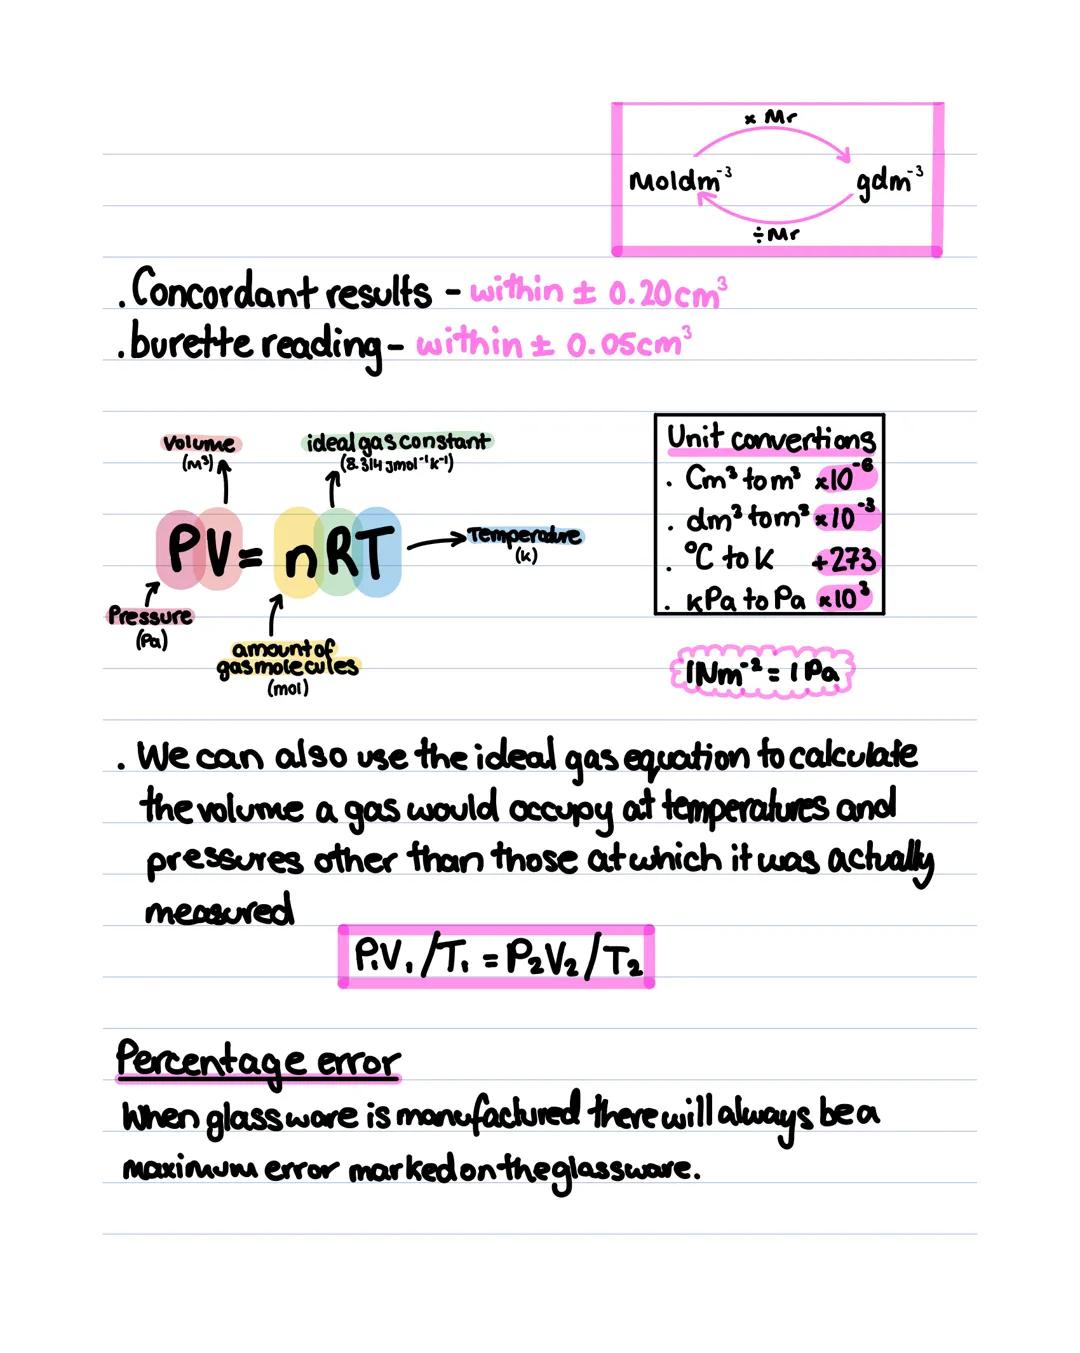 × Mr
Moldm⁻³ gdm⁻³
÷ Mr
. Concordant results - within ± 0.20cm³
. burette reading - within ± 0.05cm³
Volume
(m³)
ideal gas constant
(8.314 Jmol⁻¹K⁻¹)
PV = nRT
Temperature
(K)
Pressure
(Pa)
amount of
gas molecules
(mol)
Unit convertions
. Cm³ to m³ ×10⁻⁶
. dm³ to m³ ×10⁻³
. °C to K +273
. kPa to Pa ×10³
1Nm⁻² = 1 Pa
. We can also use the ideal gas equation to calculate
the volume a gas would occupy at temperatures and
pressures other than those at which it was actually
measured
P₁V₁/T₁ = P₂V₂/T₂
Percentage error
When glassware is manufactured there will always be a
maximum error marked on the glassware.